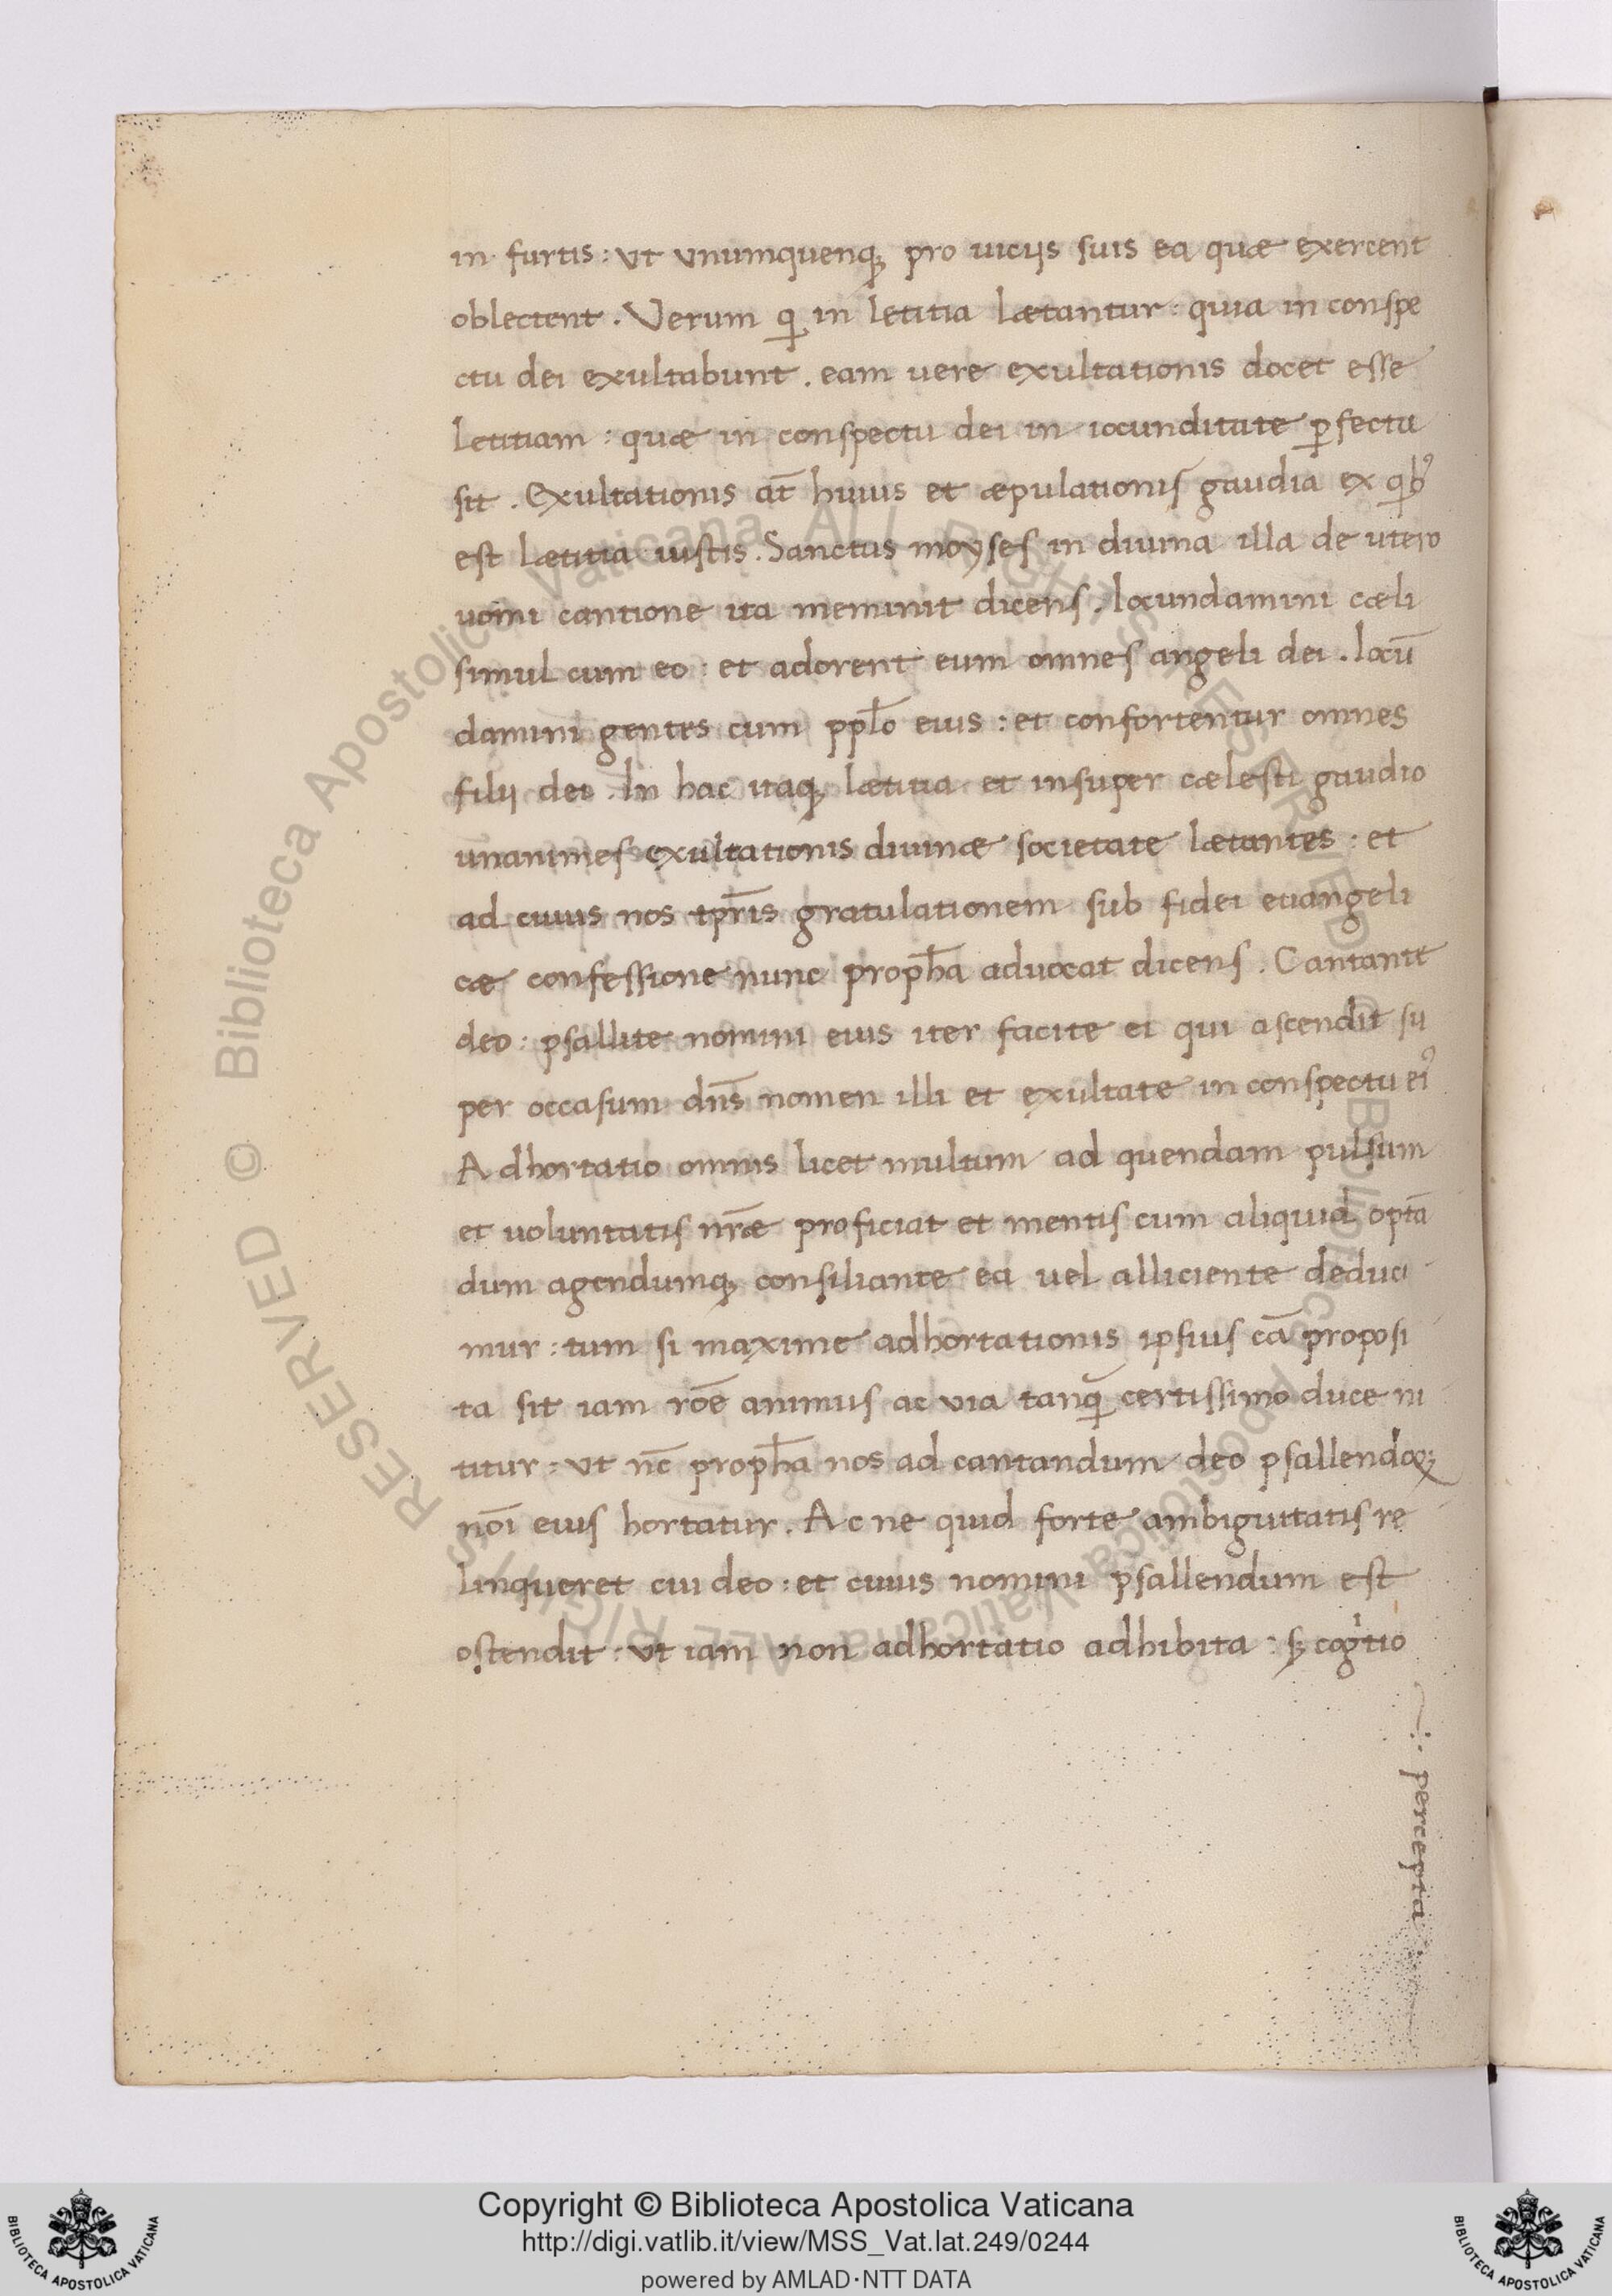 in furtis : ut unumquenq; pro uicijs suis ea quæ exercent
oblectent . Verum qͥ in letitia lætantur : quia in conspe
ctu dei exultabunt . eam uere exultationis docet esse
letitiam : quæ in conspectu dei in iocunditate ꝑfectu
sit . Exultationis at̄ huius et æpulationis gaudia ex qͥbꝰ
est lætitia iustis . Sanctus moyses in diuina illa de utero
uomi cantione ita meminit dicens . Iocundamini cæli
simul cum eo : et adorent eum omnes angeli dei . Iocū
damini gentes cum ppl̄o eius : et confortentur omnes
filij dei . In hac itaq; lætitia et insuper cælesti gaudio
unanimes exultationis diuinæ societate lætantes : et
ad cuius nos tpr̄is gratulationem sub fidei euangeli
cæ confessione nunc proph̄a aduocat dicens . Cantante
deo : psallite nomini eius iter facite ei qui ascendit su
per occasum dn̄s nomen illi et exultate in conspectu eiꝰ
Adhortatio omnis licet multum ad quendam pulsum
et uoluntatis nr̄æ proficiat et mentis cum aliquid optā
dum agendumq; consiliante ea uel alliciente deduci
mur : tum si maxime adhortationis ipsius cā proposi
ta sit iam rōe animus ac uia tanq̄ certissimo duce ni
titur : ut nc̄ proph̄a nos ad cantandum deo psallendoq;
nōi eius hortatur . Ac ne quid forte ambiguitatis re
linqueret cui deo : et cuius nomini psallendum est
ostendit : ut iam non adhortatio adhibita : sꝫ cogͥtio
percepta
RESERVED © Biblioteca Apostolica Vaticana ALL RIGHTS RESERVED © Biblioteca Apostolica Vaticana ALL RIGHTS
Copyright © Biblioteca Apostolica Vaticana
http://digi.vatlib.it/view/MSS_Vat.lat.249/0244
powered by AMLAD·NTT DATA
BIBLIOTECA APOSTOLICA VATICANA
BIBLIOTECA APOSTOLICA VATICANA